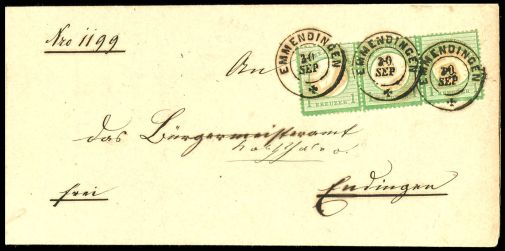 Nro 1199
An
EMMENDINGEN
20
SEP
EMMENDINGEN
20
SEP
EMMENDINGEN
20
SEP
1 KREUZER 1
das Bürgermeisteramt
frei
Endingen